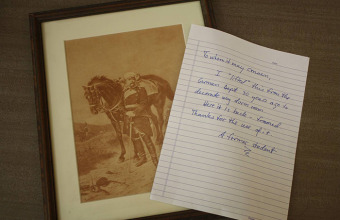 To whom it may concern,
I "stole" this from the
German Dept. 30 years ago to
decorate my dorm room.
Here it is back - framed.
Thanks for the use of it.
A former student.